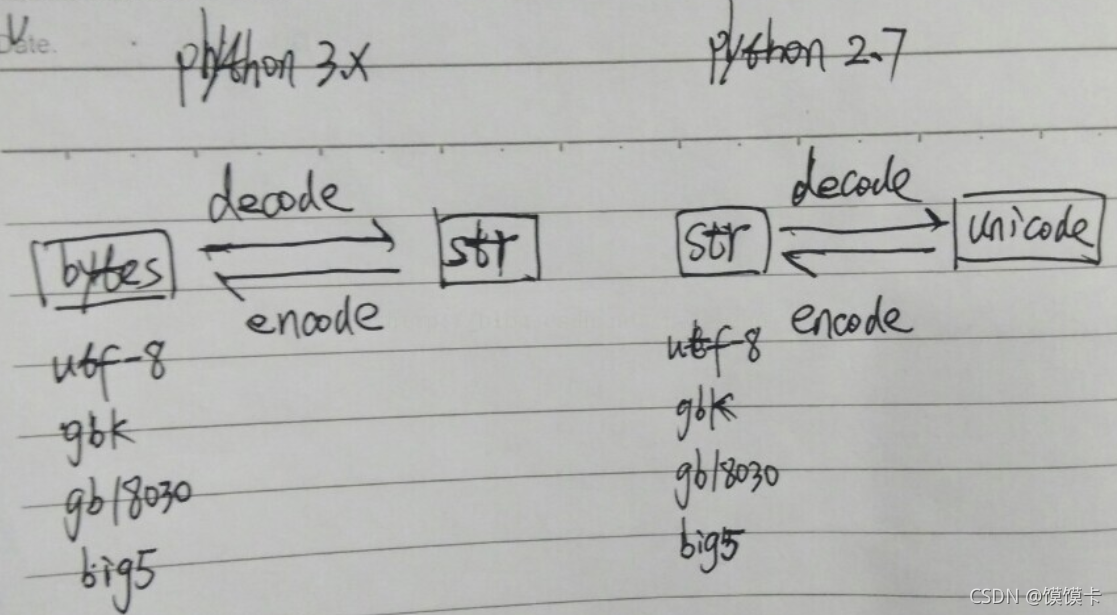 Date.
python 3.x
python 2.7
decode
bytes
str
encode
utf-8
gbk
gb18030
big5
decode
str
unicode
encode
utf-8
gbk
gb18030
big5
CSDN @馍馍卡